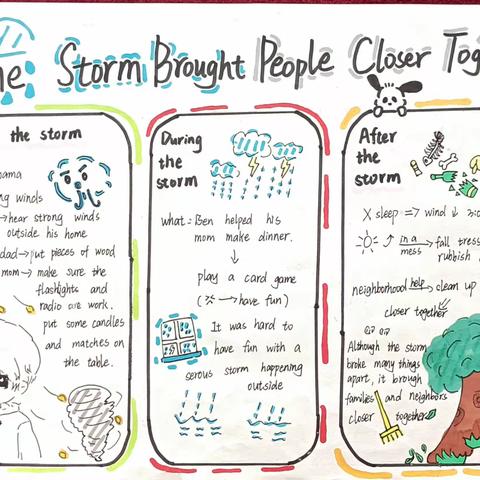 Storm Brought People Closer Tog
the storm
winds
→hear strong winds
outside his home
dad→put pieces of wood
mom→ make sure the
flashlights and
radio are work.
put some candles
and matches on
the table.
During
the
storm
what: Ben helped his
mom make dinner.
↓
play a card game
( → have fun)
It was hard to
have fun with a
serous storm happening
outside
After
the
storm
X sleep => wind ↓
in a
mess
→fall tress
rubbish
neighborhood help→ clean up
closer together
Although the storm
broke many things
apart, it brough
families and neighbors
closer together